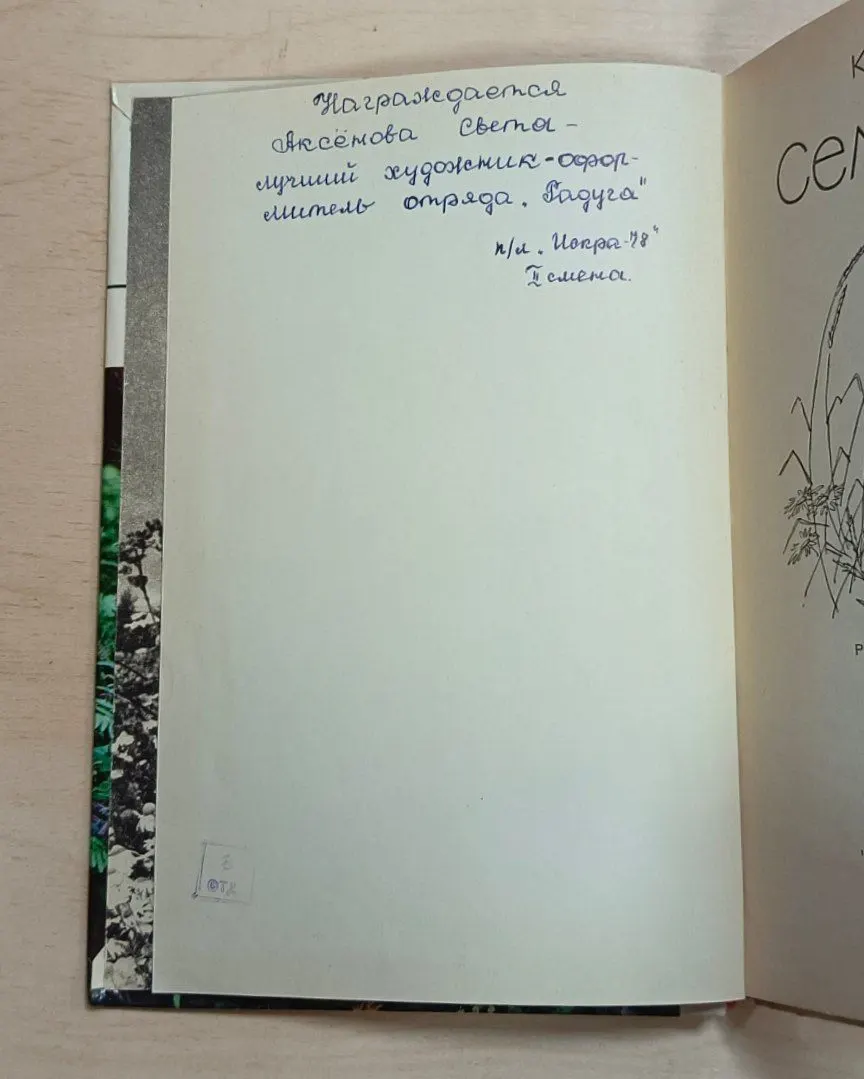 Награждается
Аксёнова Света –
лучший художник-офор-
митель отряда „Радуга"
п/л „Искра-78"
II смена.
К
сем
Р